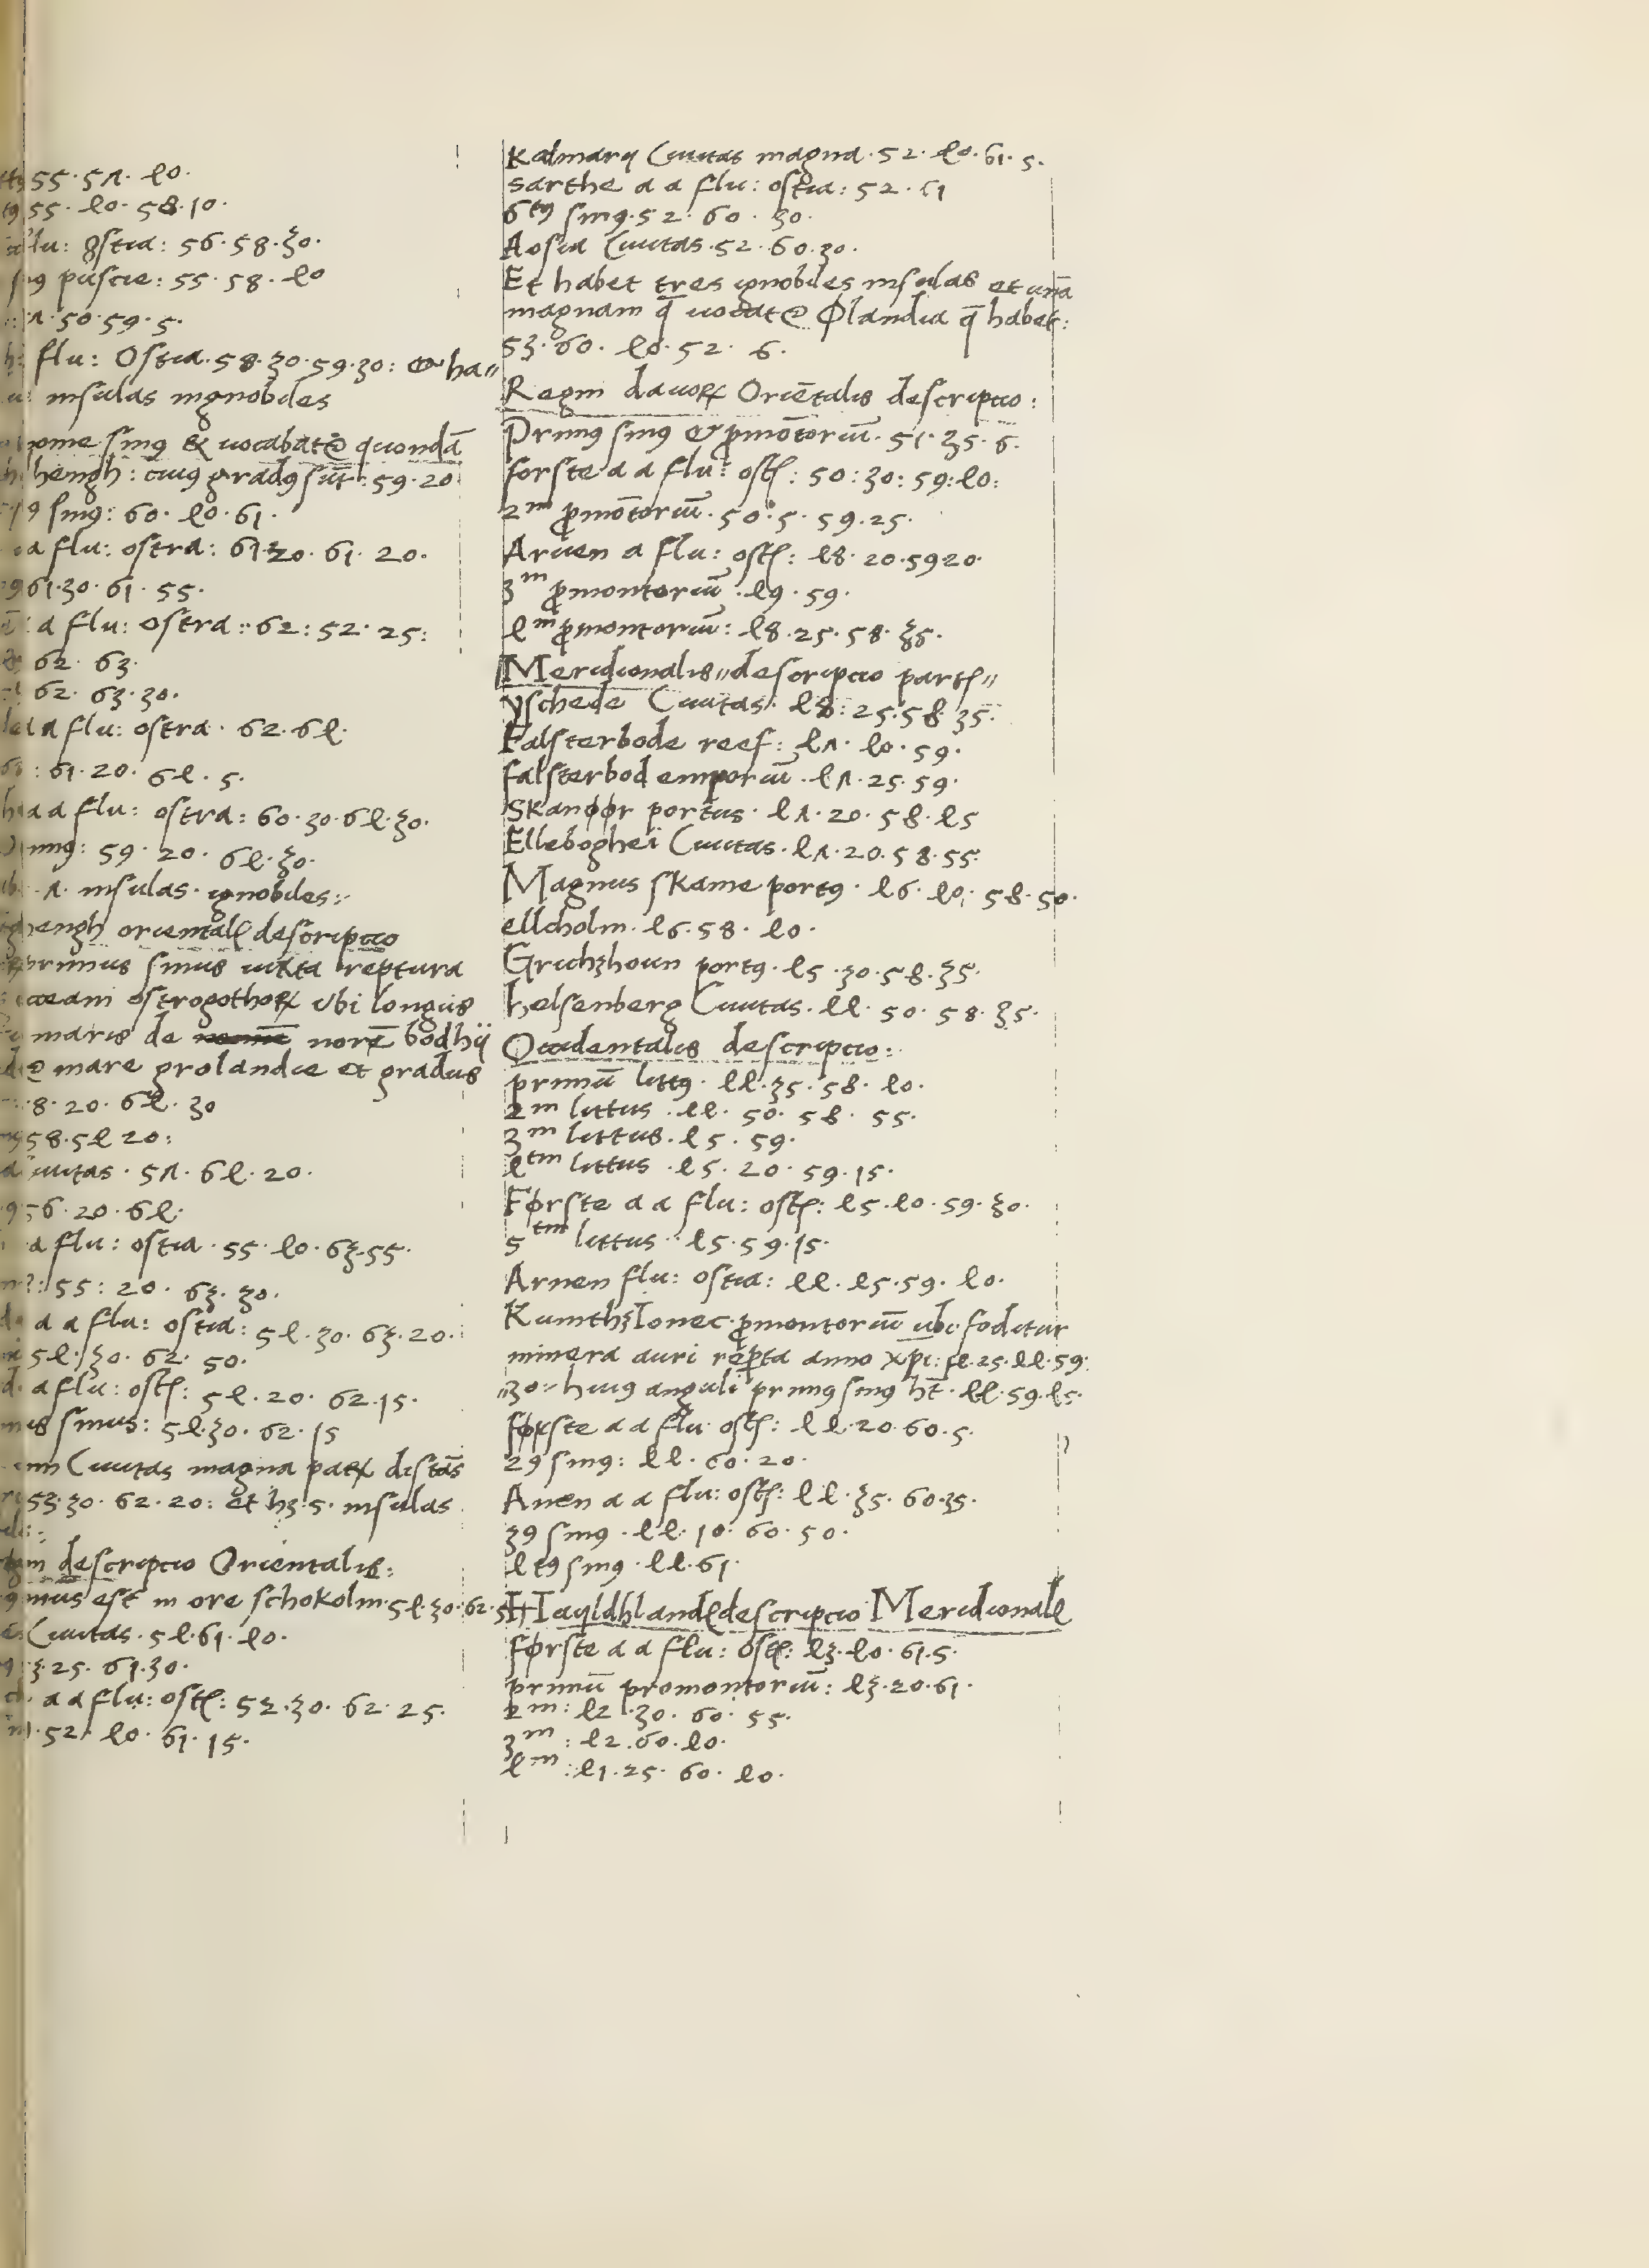 55·5ʌ·ℓ0·
55·ℓ0·58·10·
flu: ostia: 56·58·30·
pascie: 55·58·ℓ0
ʌ·50·59·5·
flu: Ostia·58·30·59·30: & ha〃
insulas ingnobiles
sinꝯ & uocabat᷑ quondā
hengh: cuiꝯ gradꝯ sūt: 59·20
sinꝯ: 60·ℓ0·61·
a flu: ostra: 61·20·61·20·
61·30·61·55·
a flu: ostra: 62: 52·25:
62·63·
62·63·30·
a flu: ostra·62·6ℓ·
: 61·20·6ℓ·5·
a a flu: ostra: 60·30·6ℓ·30·
59·20·6ℓ·30·
ʌ·insulas·ignobiles:
oriental descriptio
primus sinus iuxta reptura
oceani ostrogothoꝝ ubi longus
maris de nore bodhij
mare grolandie et gradus
8·20·6ℓ·30
58·5ℓ 20:
Ciuitas·5ʌ·6ℓ·20·
56·20·6ℓ·
a flu: ostia·55·ℓ0·63·55·
: 55: 20·63·30·
a a flu: ostia: 5ℓ·30·63·20·
5ℓ·30·62·50·
a flu: ostꝭ: 5ℓ·20·62·15·
sinus: 5ℓ·30·62·15
Ciuitas magna paꝝ distās
53·30·62·20: et hꝫ·5·insulas
descriptio Orientalis:
est in ore schokolm·5ℓ·30·62·5
Ciuitas·5ℓ·61·ℓ0·
3·25·61·30·
a a flu: ostꝭ: 52·30·62·25·
·52·ℓ0·61·15·
Kalmarn Ciuitas magna·52·ℓ0·61·5·
sarthe a a flu: ostia: 52·61
6tꝯ sinꝯ·52·60·30·
Aosia Ciuitas·52·60·30·
Et habet tres ignobiles insulas et unā
magnam q̄ uocat᷑ Ølandia q̄ habet:
53·60·ℓ0·52·6·
Regni dauoꝝ Oriētalis descriptio:
Primꝯ sinꝯ & ꝓmōtoriū·51·35·6·
forste a a flu: ostꝭ: 50: 30: 59: ℓ0:
2m ꝓmōtoriū·50·5·59·25·
Aruen a flu: ostꝭ: ℓ8·20·5920·
3m ꝓmontoriū·ℓ9·59·
ℓm ꝓmontoriū: ℓ8·25·58·35·
Meridionalis〃descriptio partꝭ〃
yschede Ciuitas·ℓ8: 25·58·35·
Falsterbode reef: ℓʌ·ℓ0·59·
falsterbod emporiū·ℓʌ·25·59·
Skanøør portus·ℓʌ·20·58·ℓ5
Elleboghei Ciuitas·ℓʌ·20·58·55·
Magnus skame portꝯ·ℓ6·ℓ0·58·50·
ellcholm·ℓ6·58·ℓ0·
Gruchꝫhoun portꝯ·ℓ5·30·58·35·
helsenberg Ciuitas·ℓℓ·50·58·35·
Occidentalis descriptio:
primū littꝯ·ℓℓ·35·58·ℓ0·
2m littus·ℓℓ·50·58·55·
3m littus·ℓ5·59·
ℓtm littus·ℓ5·20·59·15·
Første a a flu: ostꝭ: ℓ5·ℓ0·59·30·
5tm littus·ℓ5·59·15·
Arnen flu: ostia: ℓℓ·ℓ5·59·ℓ0·
Kumthꝫlonec ꝓmontoriū ubi foditur
minera auri reꝑta anno xpi: fe·25·ℓℓ·59·
〃30〃 huiꝯ anguli primꝯ sinꝯ ht̄·ℓℓ·59·ℓ5·
første a a flu ostꝭ: ℓℓ·20·60·5·
2ꝯ sinꝯ: ℓℓ·60·20·
Anen a a flu: ostꝭ: ℓℓ·35·60·35·
3ꝯ sinꝯ·ℓℓ·10·60·50·
ℓtꝯ sinꝯ·ℓℓ·61·
descriptio Meridionalꝭ
første a a flu: ostꝭ: ℓ3·ℓ0·61·5·
primū promontoriū: ℓ3·20·61·
2m: ℓ2·30·60·55·
3m: ℓ2·60·ℓ0·
ℓm: ℓ1·25·60·ℓ0·